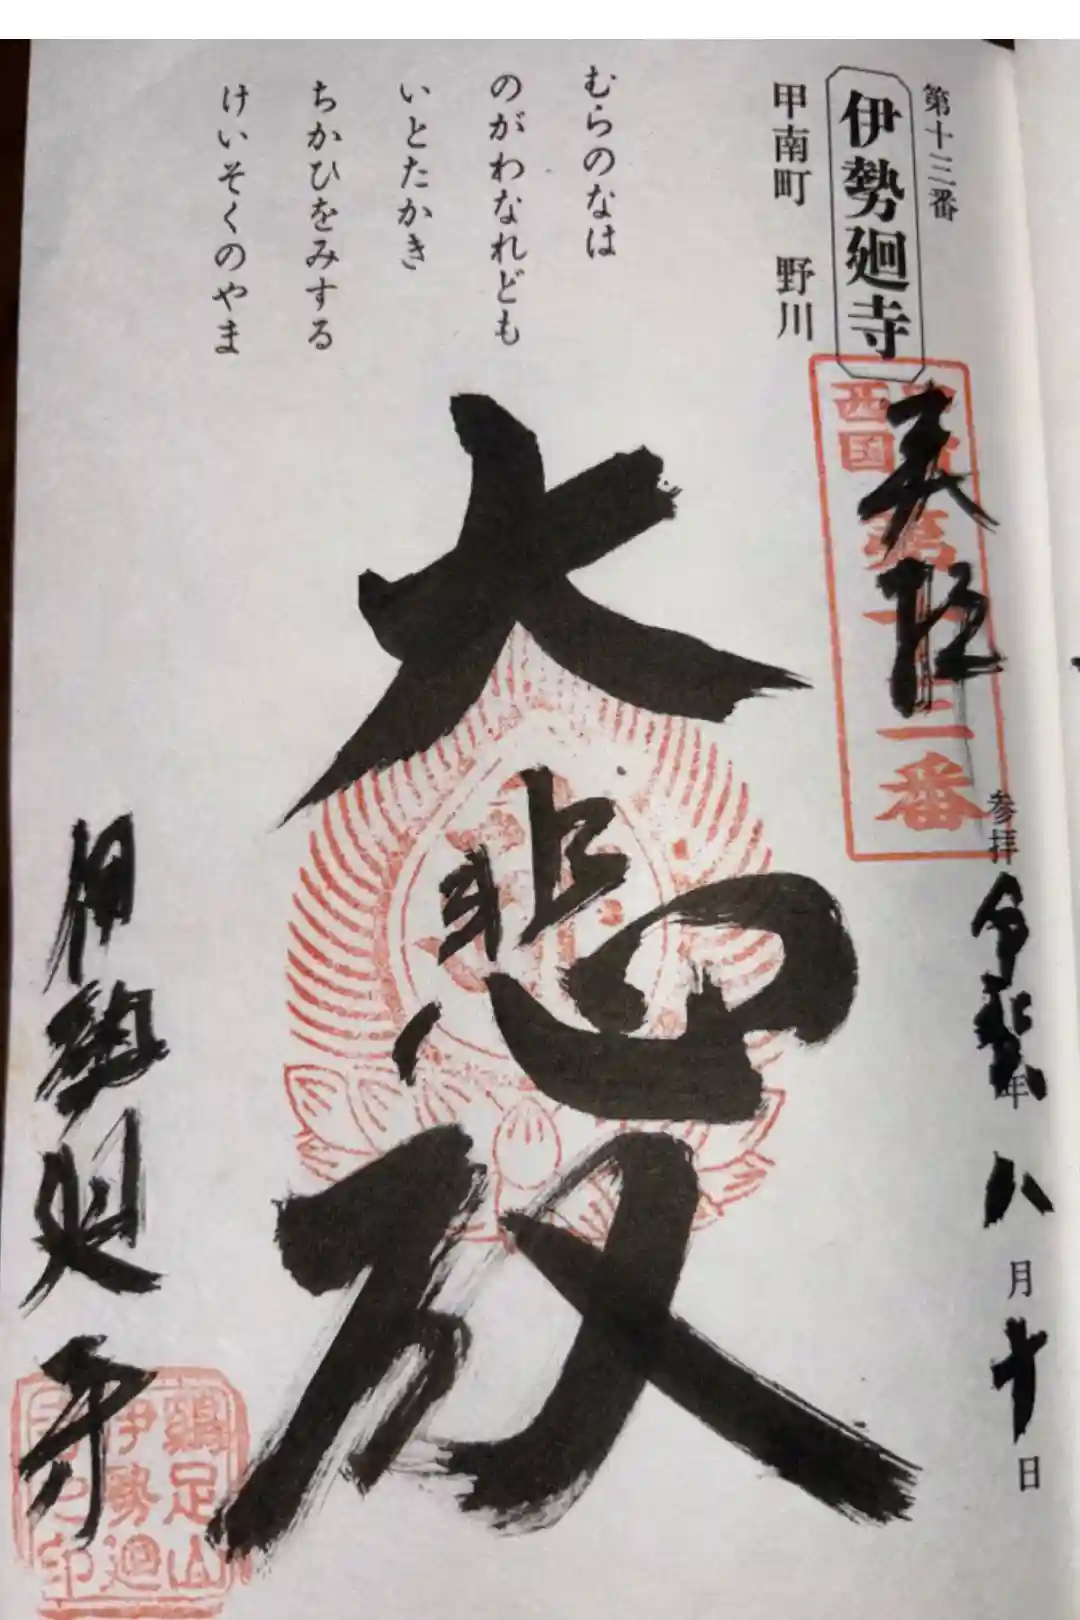 第十三番
伊勢廻寺
甲南町 野川
むらのなは
のがわなれども
いとたかき
ちかひをみする
けいそくのやま
西国
第十三番
奉拝
大悲
参拝
年
八月十日
鷄足山
伊勢廻
寺之印